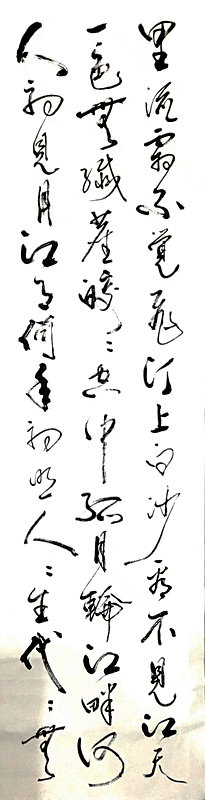 里流霜不覺飛汀上白沙看不見江天
一色無纖塵皎〻空中孤月輪江畔何
人初見月江月何年初照人〻生代〻無